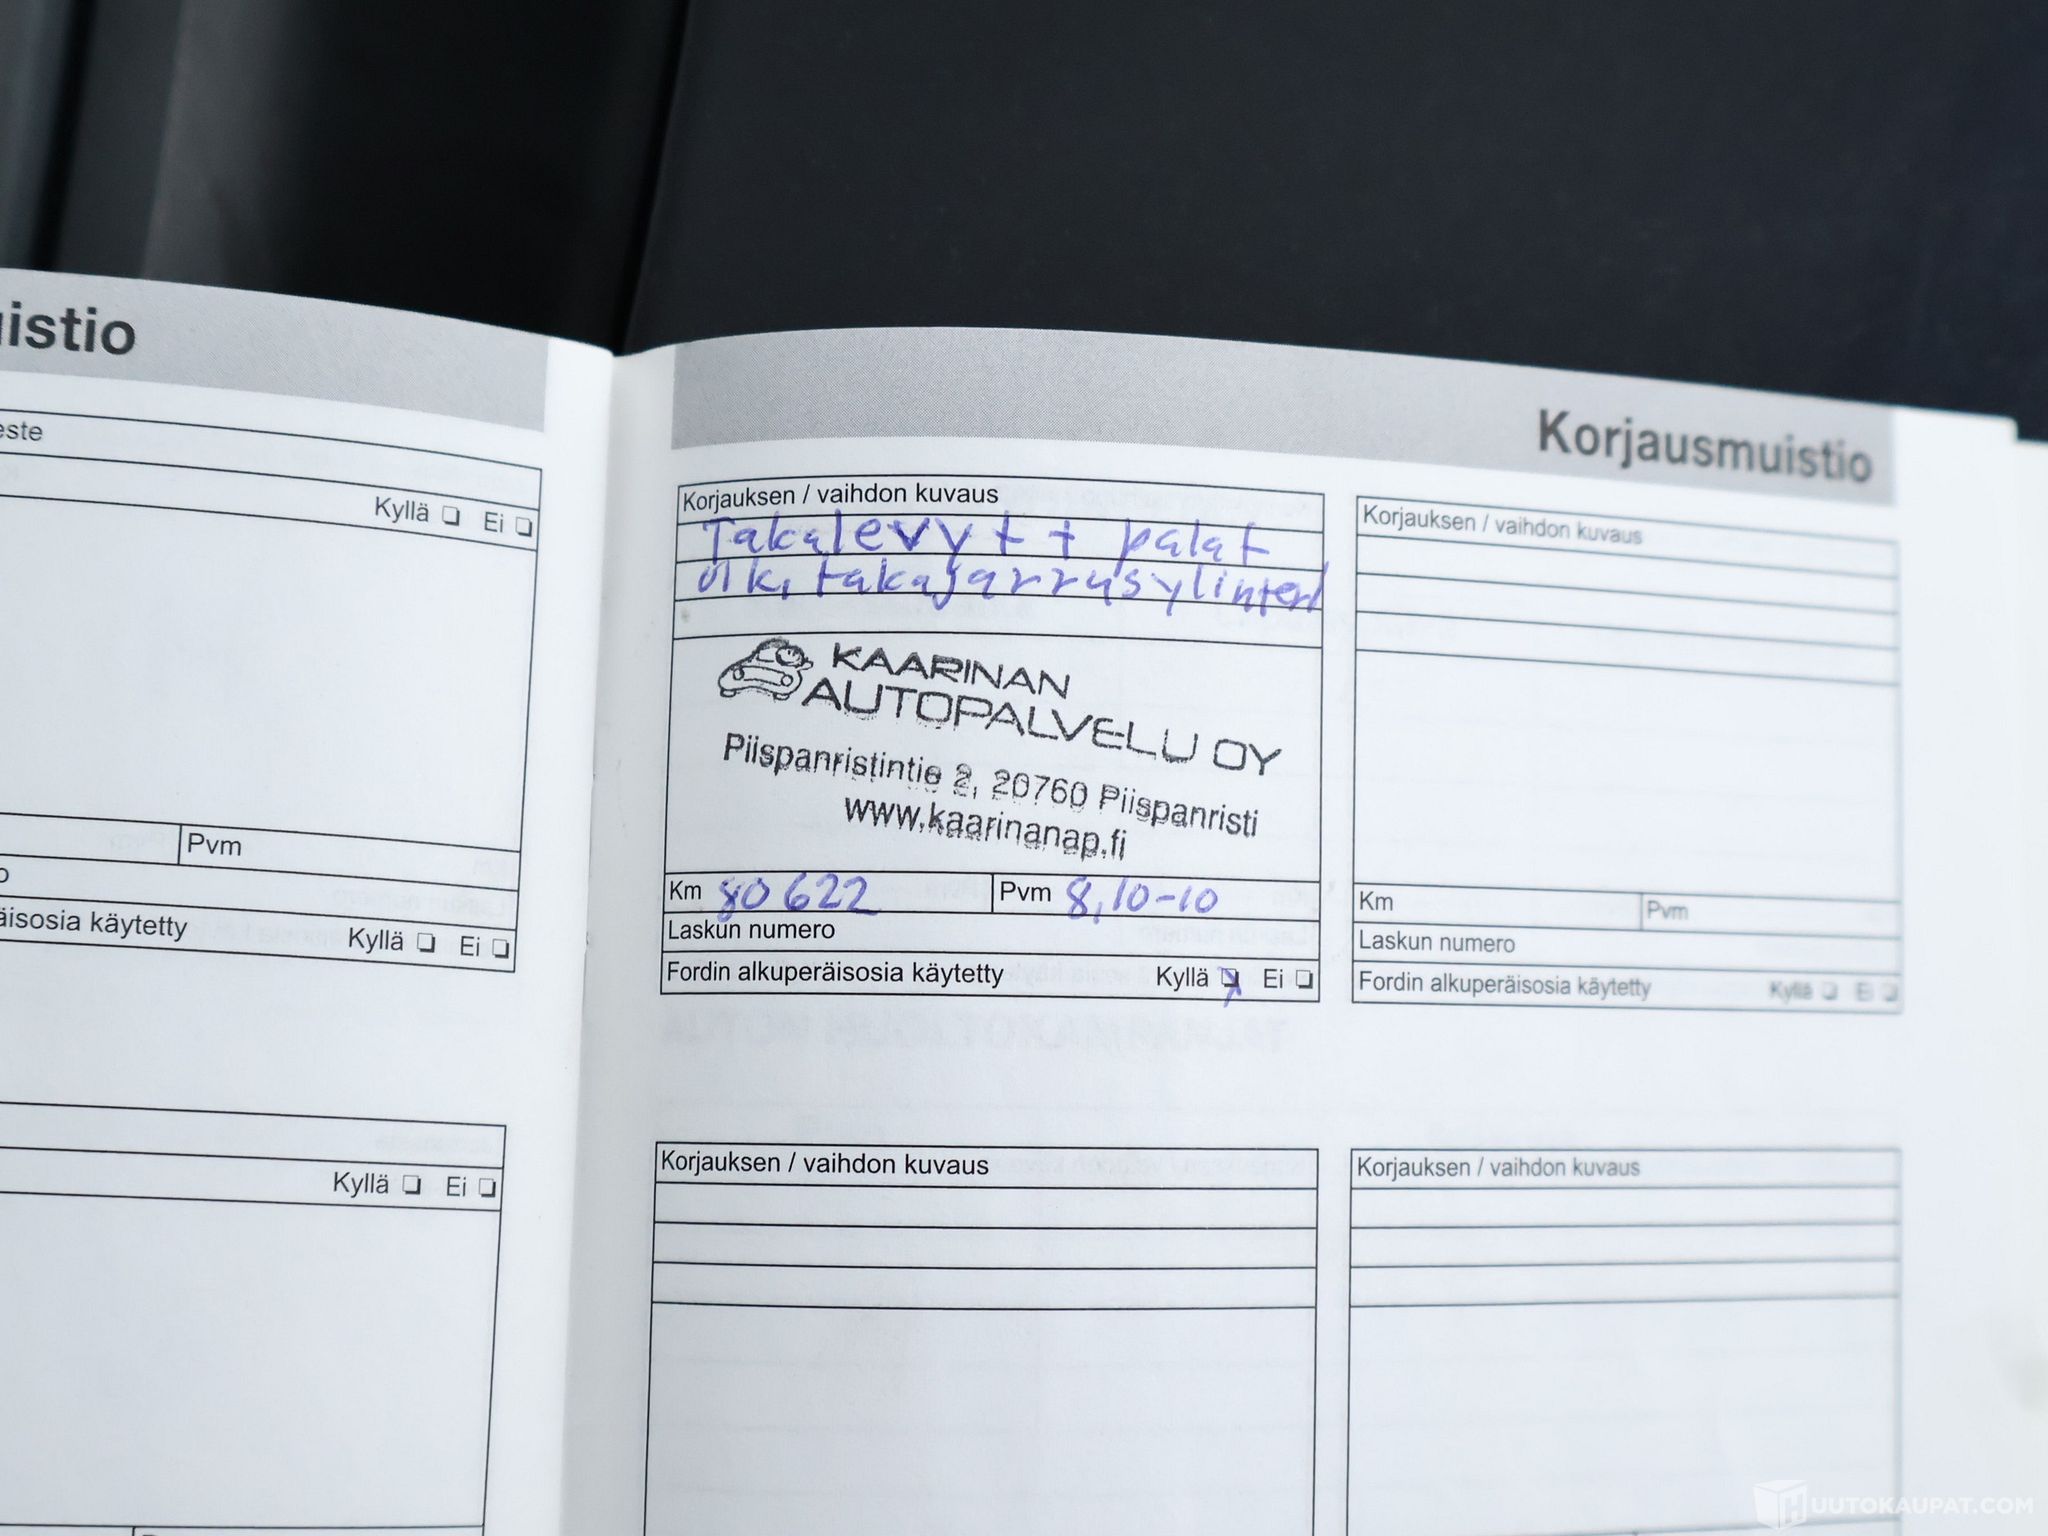 istio
este
Kyllä Ei
Pvm
äisosia käytetty Kyllä Ei
Kyllä Ei
Korjausmuistio
Korjauksen / vaihdon kuvaus
Takalevyt + palat
oik, takajarrusylinteri
KAARINAN
AUTOPALVELU OY
Piispanristintie 2, 20760 Piispanristi
www.kaarinanap.fi
Km 80 622 Pvm 8,10-10
Laskun numero
Fordin alkuperäisosia käytetty Kyllä Ei
Korjauksen / vaihdon kuvaus
Km Pvm
Laskun numero
Fordin alkuperäisosia käytetty Kyllä Ei
Korjauksen / vaihdon kuvaus
Korjauksen / vaihdon kuvaus
HUUTOKAUPAT.COM